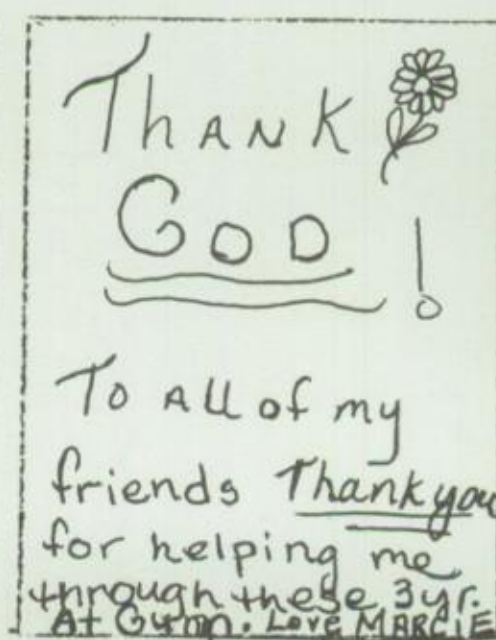 THANK
GOD !
To All of my
friends Thank you
for helping me
through these 3yr.
At Gymn. Love MARCIE